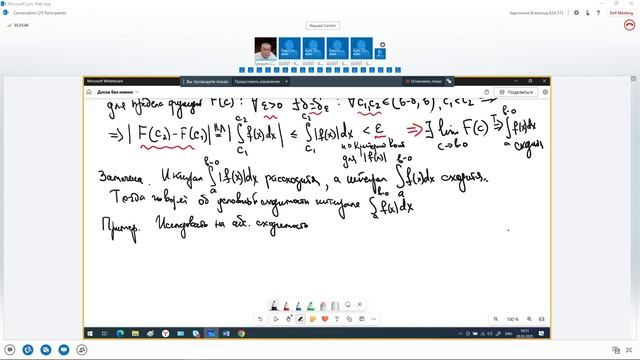 Microsoft Lync Web App
Conversation (25 Participants)
01:31:46
Exit Meeting
Request Control
Microsoft Whiteboard
Вы проводите показ
Предоставить управление
Остановить показ
Доска без имени
Поделиться
для предела функции F(c): ∀ε>0 ∃δ=δε : ∀c₁,c₂∈(b-δ, b), c₁<c₂ ⇒
⇒ |F(c₂)-F(c₁)| = |∫c₁^c₂ f(x)dx| ≤ ∫c₁^c₂ |f(x)|dx < ε ⇒ ∃ lim c→b-0 F(c) ⇒ ∫a^b-0 f(x)dx сходится
по критерию Коши
для |f(x)|
Замечание. Интеграл ∫a^b-0 |f(x)|dx расходится, а интеграл ∫a^b-0 f(x)dx сходится.
Тогда говорят об условной сходимости интеграла ∫a^b-0 f(x)dx
Пример. Исследовать на абс. сходимость
100 %
ENG
10:51